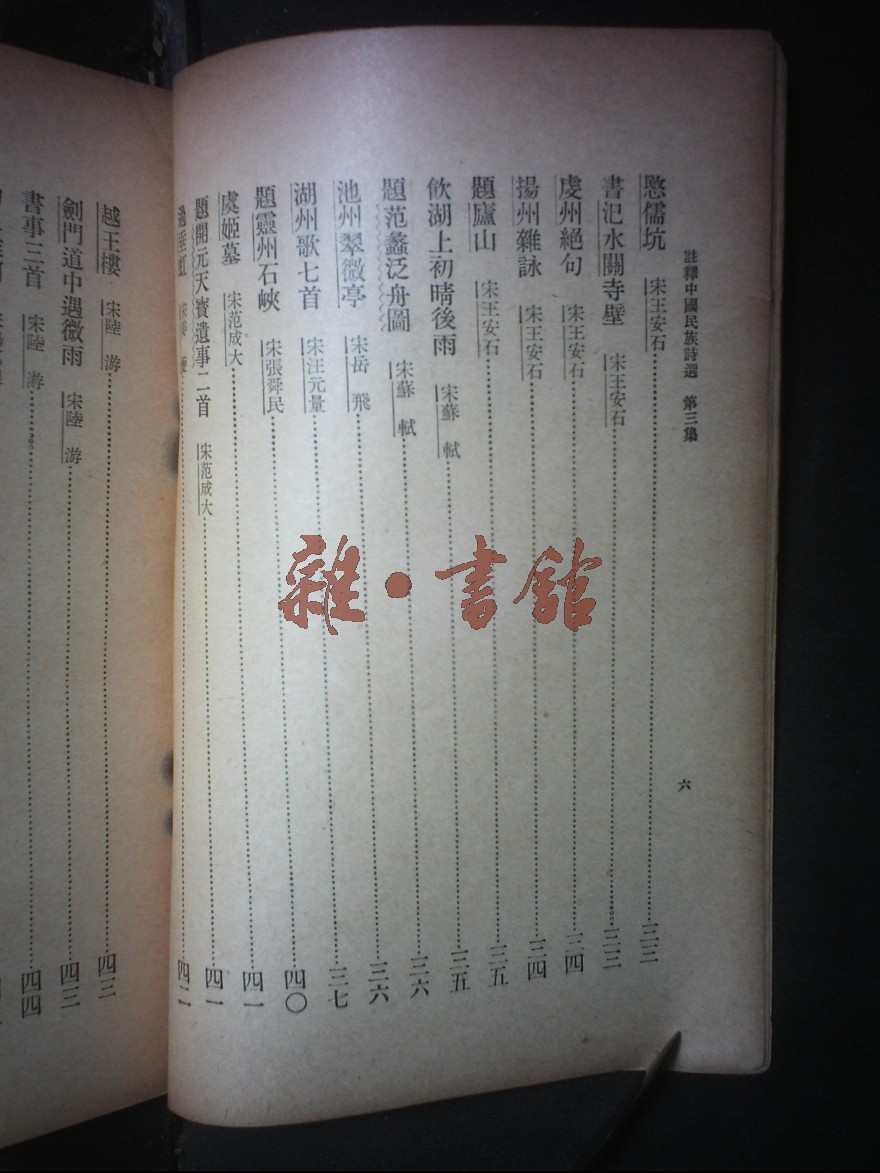 註釋中國民族詩選 第三集 六
愍儒坑 宋王安石 三三
書汜水關寺壁 宋王安石 三三
虔州絕句 宋王安石 三四
揚州雜詠 宋王安石 三四
題廬山 宋王安石 三五
飲湖上初晴後雨 宋蘇軾 三五
題范蠡泛舟圖 宋蘇軾 三六
池州翠微亭 宋岳飛 三六
湖州歌七首 宋汪元量 三七
題靈州石峽 宋張舜民 四〇
虞姬墓 宋范成大 四一
題開元天寶遺事二首 宋范成大 四一
過垂虹 四二
越王樓 宋陸游 四三
劍門道中遇微雨 宋陸游 四三
書事三首 宋陸游 四四
雜·書館